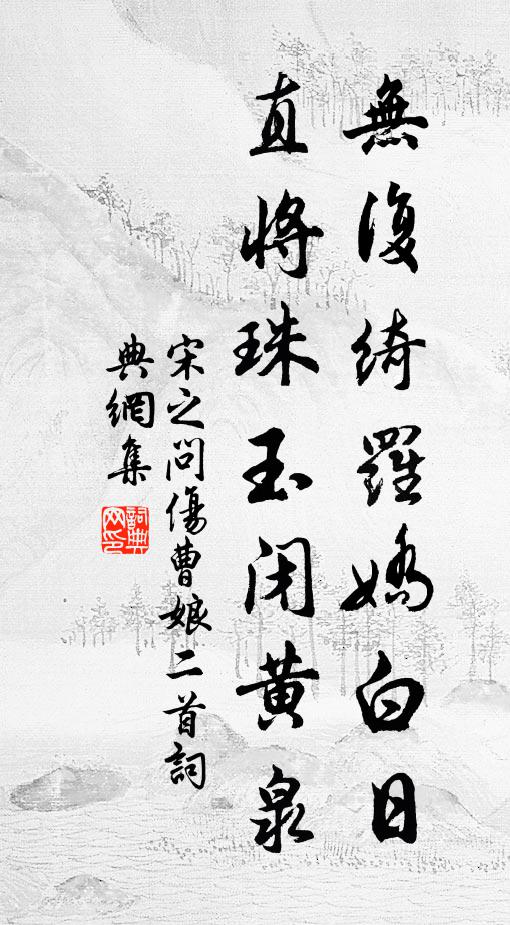 無復綺羅嬌白日
直將珠玉閉黃泉
宋之問傷曹娘二首詞
典網集
詞典網印